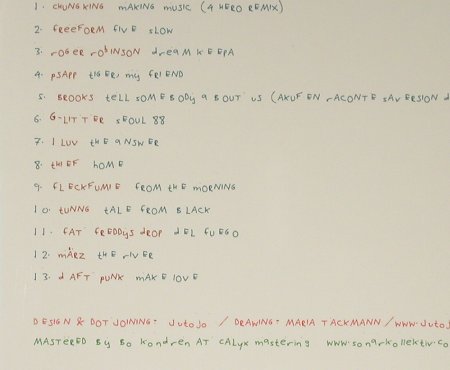 1. CHUNGKING MAKING MUSIC (4 HERO REMIX)
2. FREEFORM FIVE SLOW
3. ROGER ROBINSON DREAM KEEPA
4. PSAPP TIGER, MY FRIEND
5. BROOKS TELL SOMEBODY ABOUT US (AKUFEN RACONTE SAVERSION D
6. G-LITTER SEOUL 88
7. I LUV THE ANSWER
8. THIEF HOME
9. FLECKFUMIE FROM THE MORNING
10. TUNNG TALE FROM BLACK
11. FAT FREDDYS DROP DEL FUEGO
12. MÄRZ THE RIVER
13. DAFT PUNK MAKE LOVE
DESIGN & DOT JOINING: JUTOJO / DRAWING: MARIA TACKMANN / WWW.JUTOJ
MASTERED BY BO KONDREN AT CALYX MASTERING WWW.SONARKOLLEKTIV.CO